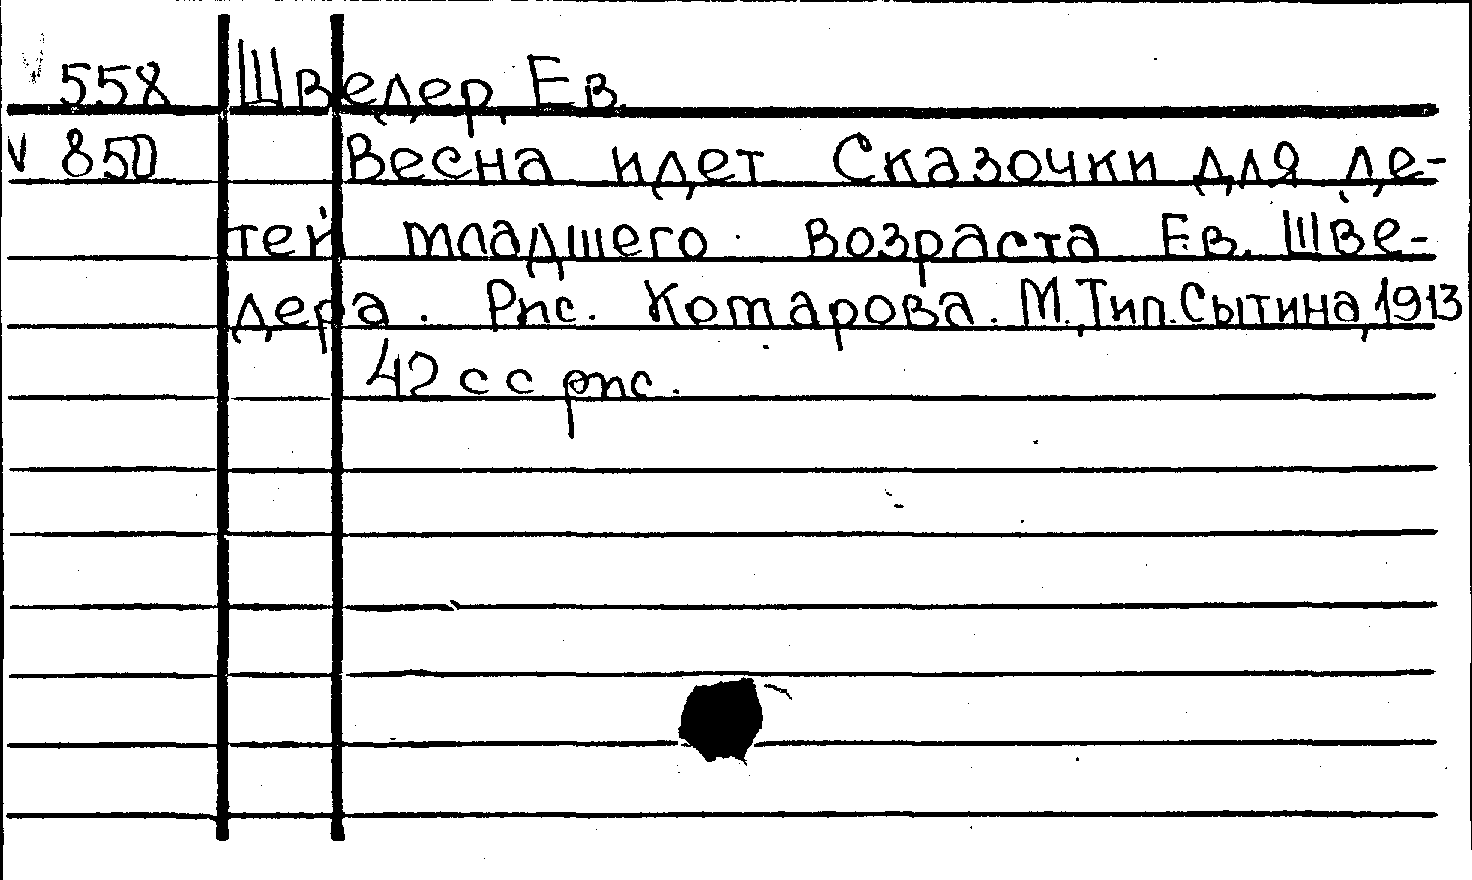 V 558 Шведер, Ев.
V 850 Весна идет Сказочки для де-
тей младшего возраста Ев. Шве-
дера. Рис. Комарова. М., Тип. Сытина, 1913
42 с с рис.